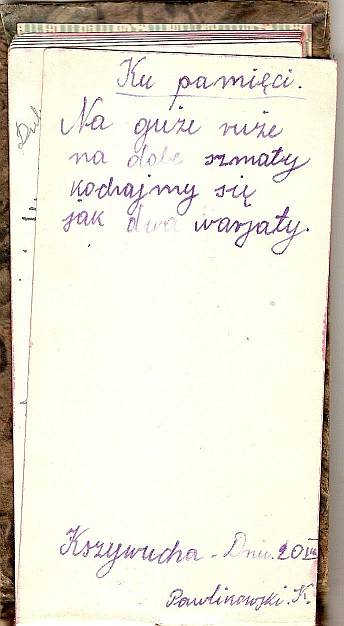 Ku pamięci.
Na guże ruże
na dole szmaty
kochajmy się
jak dwa warjaty.
Krzywucha - Dnia 20
Pawlikowski. K.